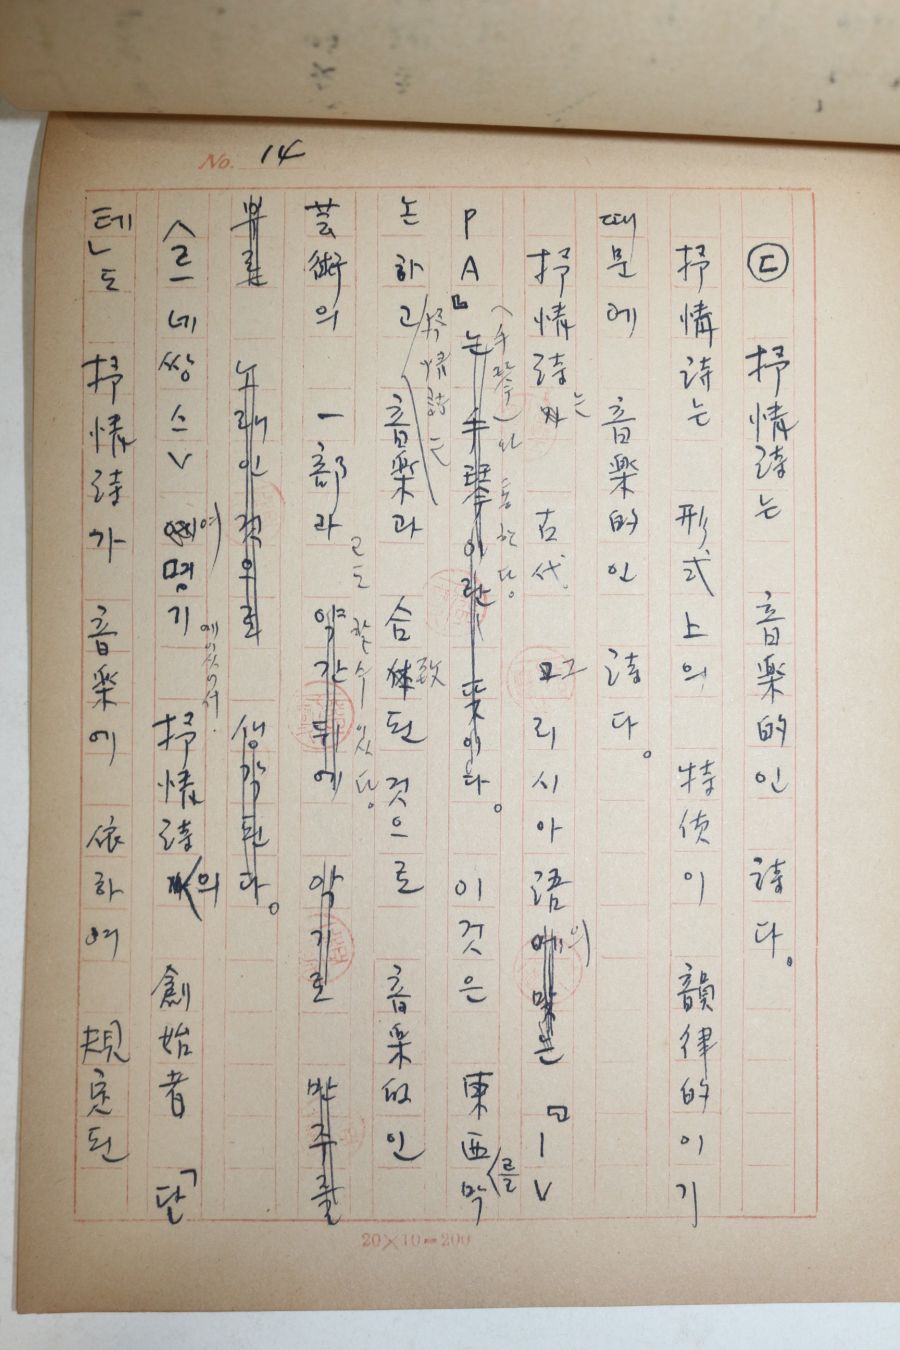 No. 14
ⓒ 抒情詩는 音樂的인 詩다。
抒情詩는 形式上의 特質이 韻律的이기
때문에 音樂的인 詩다。
抒情詩는 古代 그리시아語의 『IV
PA』는 手琴이란 뜻이다。 이것은 東西막
(手琴)와 통한다。
를
논하고 音樂과 合体된 것으로 音楽的인
抒情詩는
致
芸術의 一部라 약간 뒤에 악기로 반주를
고도 할 수 있다。
노래인 것으로 생각된다。
<르네쌍스> 여명기 抒情詩의 創始者 「단
에 있어서
텐」도 抒情詩가 音楽에 依하여 規定된
20×10=200